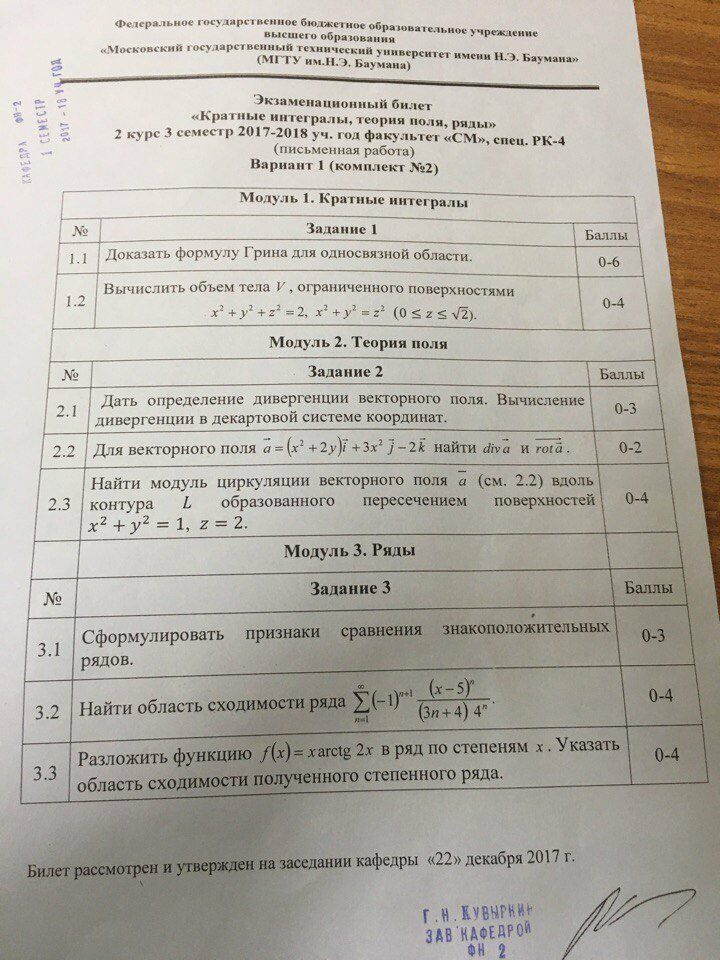 Федеральное государственное бюджетное образовательное учреждение
высшего образования
«Московский государственный технический университет имени Н.Э. Баумана»
(МГТУ им.Н.Э. Баумана)
КАФЕДРА ФН-2
1 СЕМЕСТР
2017 - 18 УЧ.ГОД
Экзаменационный билет
«Кратные интегралы, теория поля, ряды»
2 курс 3 семестр 2017-2018 уч. год факультет «СМ», спец. РК-4
(письменная работа)
Вариант 1 (комплект №2)
Модуль 1. Кратные интегралы
№ Задание 1 Баллы
1.1 Доказать формулу Грина для односвязной области. 0-6
1.2 Вычислить объем тела V, ограниченного поверхностями 0-4
x² + y² + z² = 2, x² + y² = z² (0 ≤ z ≤ √2).
Модуль 2. Теория поля
№ Задание 2 Баллы
2.1 Дать определение дивергенции векторного поля. Вычисление 0-3
дивергенции в декартовой системе координат.
2.2 Для векторного поля a⃗ = (x² + 2y)i⃗ + 3x² j⃗ − 2k⃗ найти div a⃗ и rot a⃗. 0-2
2.3 Найти модуль циркуляции векторного поля a⃗ (см. 2.2) вдоль 0-4
контура L образованного пересечением поверхностей
x² + y² = 1, z = 2.
Модуль 3. Ряды
№ Задание 3 Баллы
3.1 Сформулировать признаки сравнения знакоположительных 0-3
рядов.
3.2 Найти область сходимости ряда ∑_{n=1}^{∞} (−1)^{n+1} (x−5)^n / ((3n+4) 4^n). 0-4
3.3 Разложить функцию f(x) = x arctg 2x в ряд по степеням x. Указать 0-4
область сходимости полученного степенного ряда.
Билет рассмотрен и утвержден на заседании кафедры «22» декабря 2017 г.
Г.Н.КУВЫРКИН
ЗАВ КАФЕДРОЙ
ФН 2